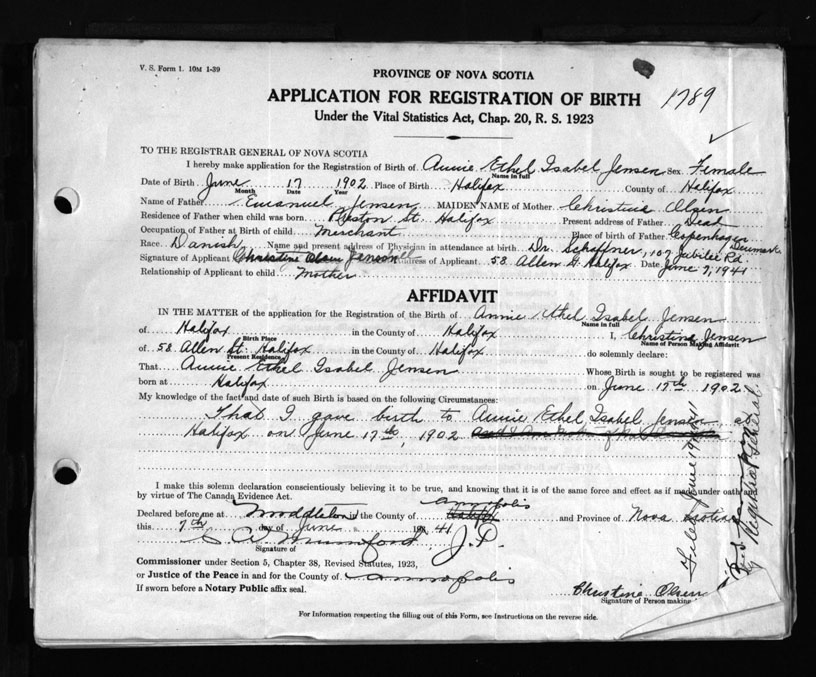 V. S. Form 1. 10M 1-39
PROVINCE OF NOVA SCOTIA
APPLICATION FOR REGISTRATION OF BIRTH 1789
Under the Vital Statistics Act, Chap. 20, R. S. 1923
TO THE REGISTRAR GENERAL OF NOVA SCOTIA
I hereby make application for the Registration of Birth of Annie Ethel Isabel Jensen Sex Female
Name in full
Date of Birth June 17 1902 Place of Birth Halifax County of Halifax
Month Date Year
Name of Father Emanuel Jensen MAIDEN NAME of Mother Christina Olsen
Residence of Father when child was born St. Halifax Present address of Father Dead
Occupation of Father at Birth of child Merchant Place of birth of Father Copenhagen Denmark
Race Danish Name and present address of Physician in attendance at birth Dr. Schaffner, 107 Jubilee Rd
Signature of Applicant Christine Jensen Address of Applicant 58 Allen St Halifax Date June 7, 1941
Relationship of Applicant to child Mother
AFFIDAVIT
IN THE MATTER of the application for the Registration of the Birth of Annie Ethel Isabel Jensen
Name in full
of Halifax in the County of Halifax I, Christina Jensen
Birth Place Name of Person Making Affidavit
of 58 Allen St. Halifax in the County of Halifax do solemnly declare:
Present Residence
That Annie Ethel Isabel Jensen Whose Birth is sought to be registered was
born at Halifax on June 17th 1902
My knowledge of the fact and date of such Birth is based on the following Circumstances:
That I gave birth to Annie Ethel Isabel Jensen at
Halifax on June 17th, 1902
I make this solemn declaration conscientiously believing it to be true, and knowing that it is of the same force and effect as if made under oath and
by virtue of The Canada Evidence Act.
Annapolis
Declared before me at Middleton in the County of Halifax and Province of Nova Scotia
this 7th day of June 1941
Mumford J.P.
Signature of
Commissioner under Section 5, Chapter 38, Revised Statutes, 1923,
or Justice of the Peace in and for the County of Annapolis
If sworn before a Notary Public affix seal.
Christina Olsen
Signature of Person making
For Information respecting the filling out of this Form, see Instructions on the reverse side.
Filed June 1941
Registrar General